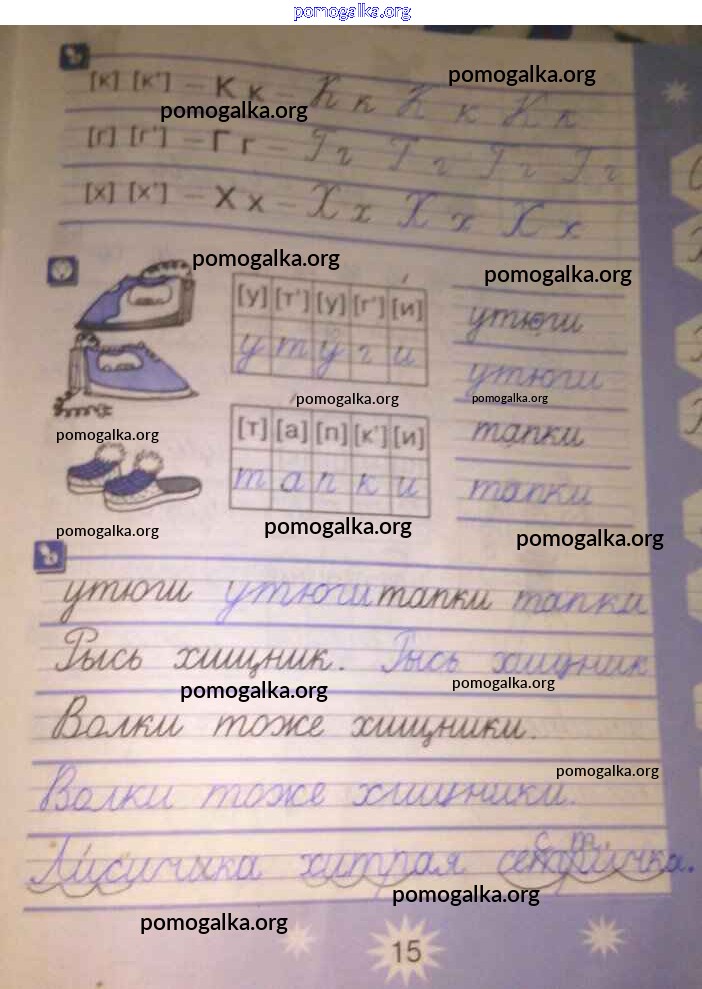 pomogalka.org
pomogalka.org
[к] [к'] – К к – К к К к К к
pomogalka.org
[г] [г'] – Г г – Г г Г г Г г Г г
[х] [х'] – Х х – Х х Х х Х х
pomogalka.org
pomogalka.org
[у] [т'] [у] [г'] [и]
утюги
у т у г и
утюги
pomogalka.org
pomogalka.org
[т] [а] [п] [к'] [и]
тапки
pomogalka.org
т а п к и
тапки
pomogalka.org
pomogalka.org
pomogalka.org
утюги утюги тапки тапки
Рысь хищник. Рысь хищник
pomogalka.org
pomogalka.org
Волки тоже хищники.
pomogalka.org
Волки тоже хищники.
хитрая
pomogalka.org
pomogalka.org
15